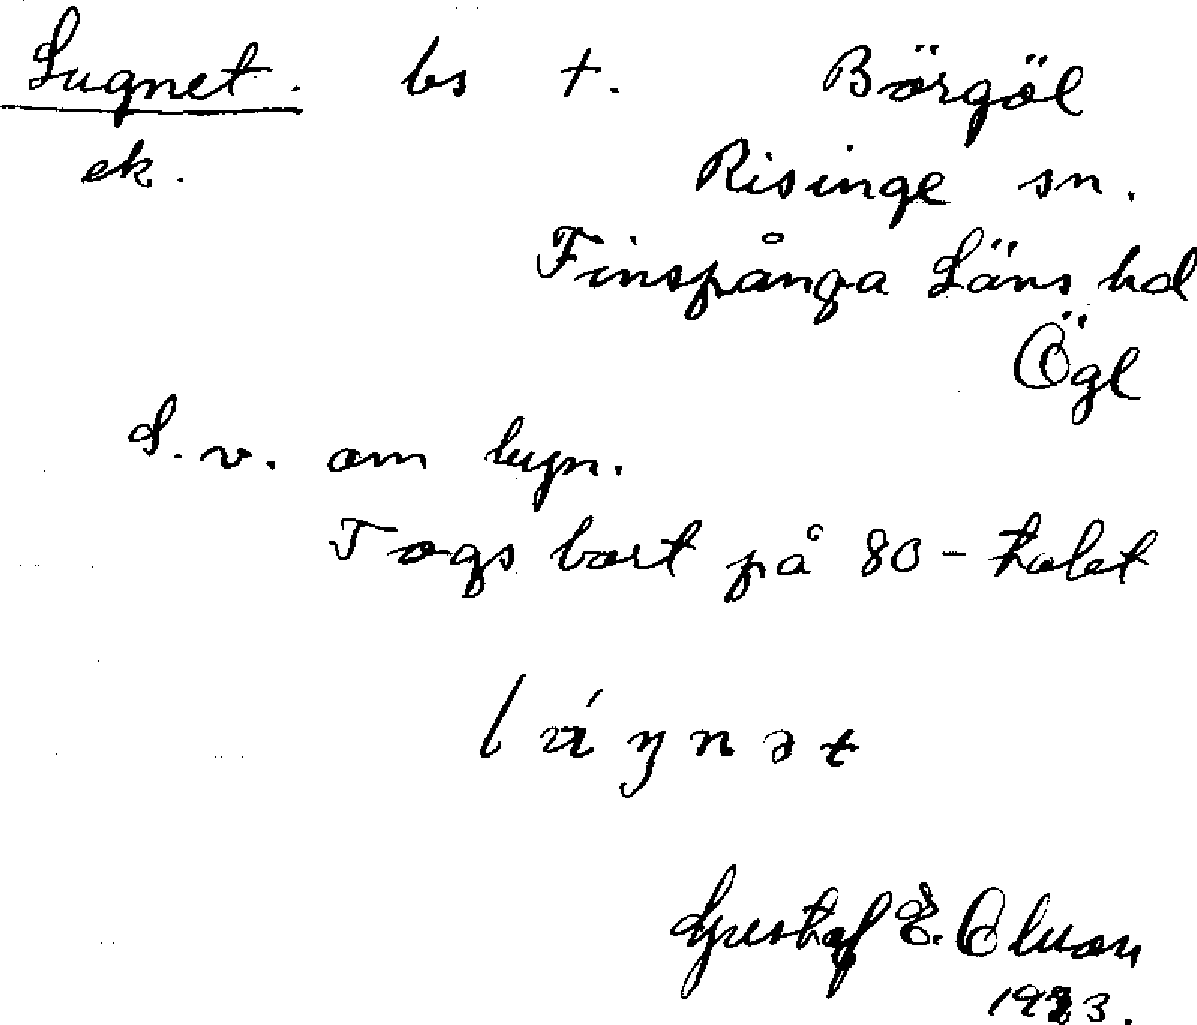 Lugnet. bs †. Börgöl
ek. Risinge sn.
Finspånga Läns hd
Ögl
S. v. om byn.
Togs bort på 80-talet
Gustaf E. Olsson